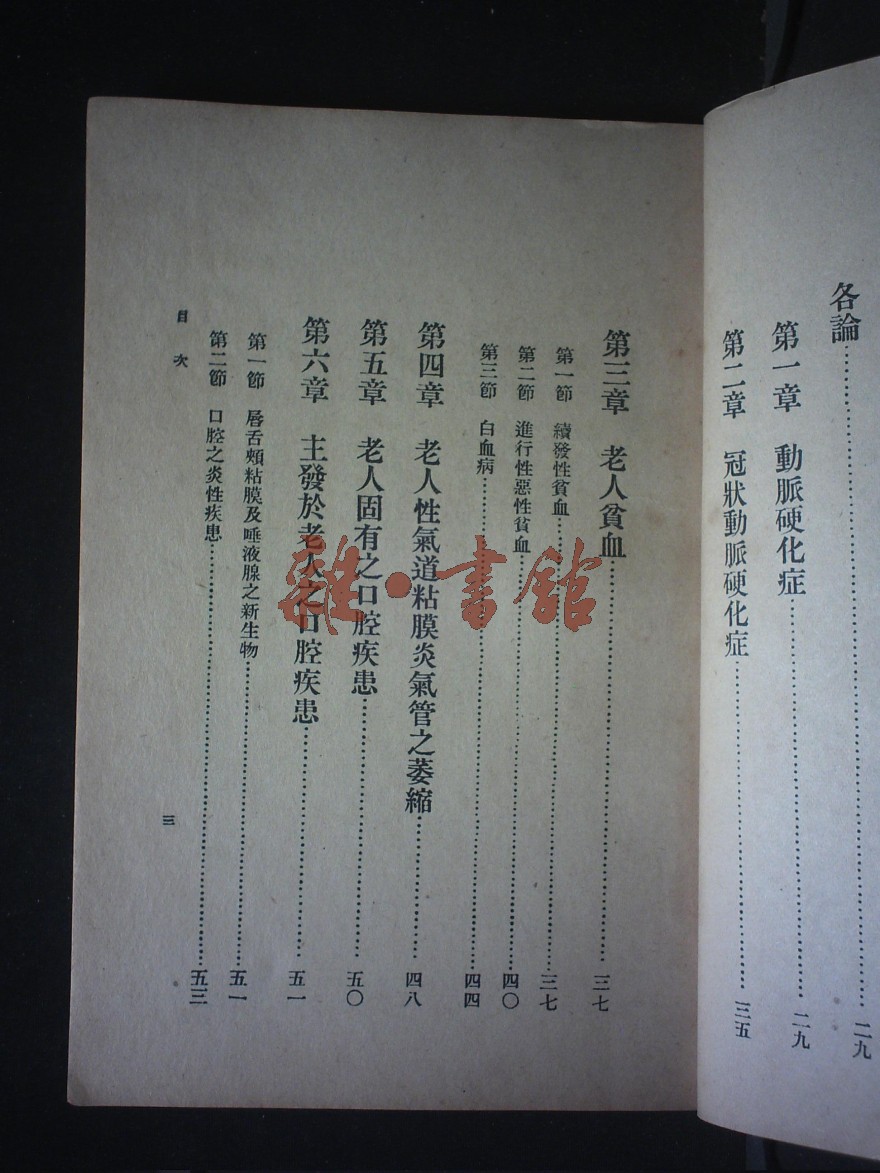 各論……二九
第一章 動脈硬化症……二九
第二章 冠狀動脈硬化症……三五
第三章 老人貧血……三七
第一節 續發性貧血……三七
第二節 進行性惡性貧血……四〇
第三節 白血病……四四
第四章 老人性氣道粘膜炎氣管之萎縮……四八
第五章 老人固有之口腔疾患……五〇
第六章 主發於老人之口腔疾患……五一
第一節 唇舌頰粘膜及唾液腺之新生物……五一
第二節 口腔之炎性疾患……五三
目次
三
雜·書館